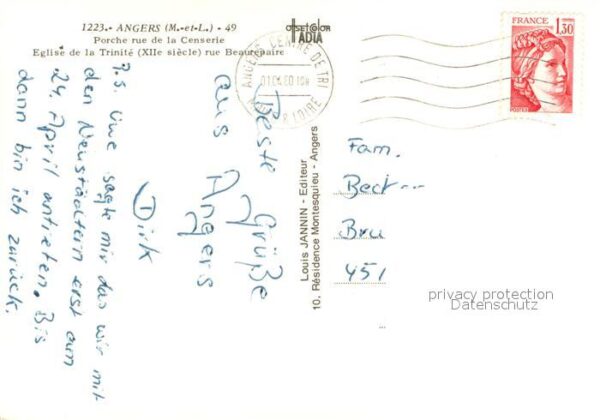 1223.- ANGERS (M.-et-L.) - 49
Porche rue de la Censerie
Eglise de la Trinité (XIIe siècle) rue Beaurepaire
OFFSETCOLOR
IADIA
ANGERS CENTRE DE TRI
FRANCE
1,30
POSTES
Beste
Grüße
aus
Angers
Dirk
P.S. Uwe sagte mir das wir mit
den Neustädtern erst am
24. April antreten. Bis
dann bin ich zurück.
Louis JANNIN - Editeur
10. Résidence Montesquieu - Angers
Fam.
Beck
Bru
451
privacy protection
Datenschutz